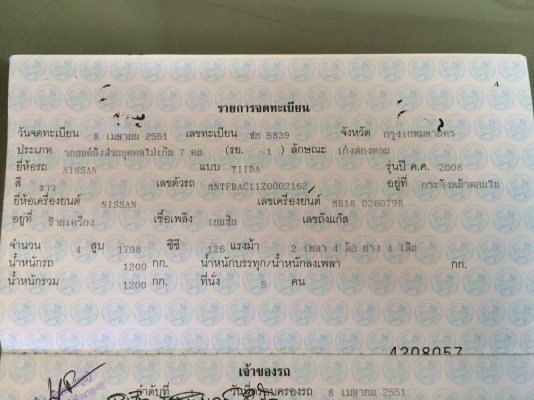 4
รายการจดทะเบียน
วันจดทะเบียน 8 เมษายน 2551 เลขทะเบียน ชอ 5839 จังหวัด กรุงเทพมหานคร
ประเภท รถยนต์นั่งส่วนบุคคลไม่เกิน 7 คน (รย. 1) ลักษณะ เก๋งสองตอน
ยี่ห้อรถ NISSAN แบบ TIIDA รุ่นปี ค.ศ. 2008
สี ขาว เลขตัวรถ MNTFBAC11Z0002162 อยู่ที่ กระจังหน้าตอนใน
ยี่ห้อเครื่องยนต์ NISSAN เลขเครื่องยนต์ MR18 026079R
อยู่ที่ ซ้ายเครื่อง เชื้อเพลิง เบนซิน เลขถังแก๊ส
จำนวน 4 สูบ 1798 ซีซี 126 แรงม้า 2 เพลา 4 ล้อ ยาง 4 เส้น
น้ำหนักรถ 1200 กก. น้ำหนักบรรทุก/น้ำหนักลงเพลา กก.
น้ำหนักรวม 1200 กก. ที่นั่ง 5 คน
4208057
เจ้าของรถ
ลำดับที่ วันที่ครอบครองรถ 8 เมษายน 2551